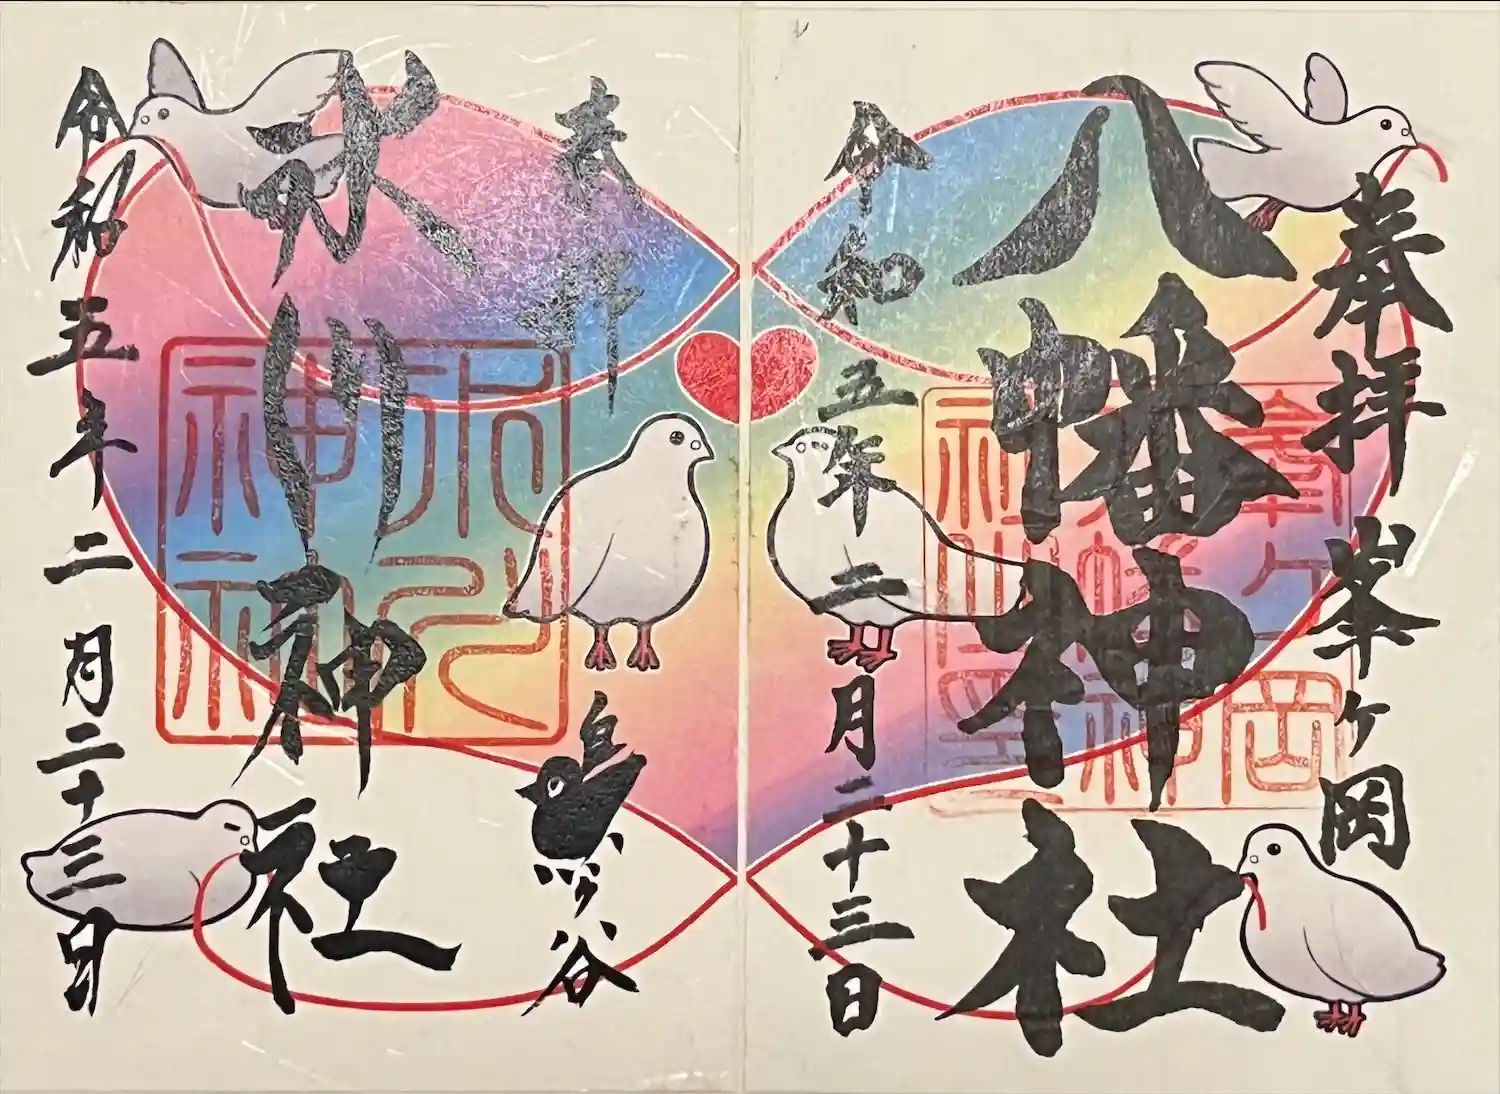 奉拝 峯ヶ岡
八幡神社
令和五年二月二十三日
峯ヶ岡
八幡神
奉拝 鳩ヶ谷
氷川神社
令和五年二月二十三日
氷川
神社